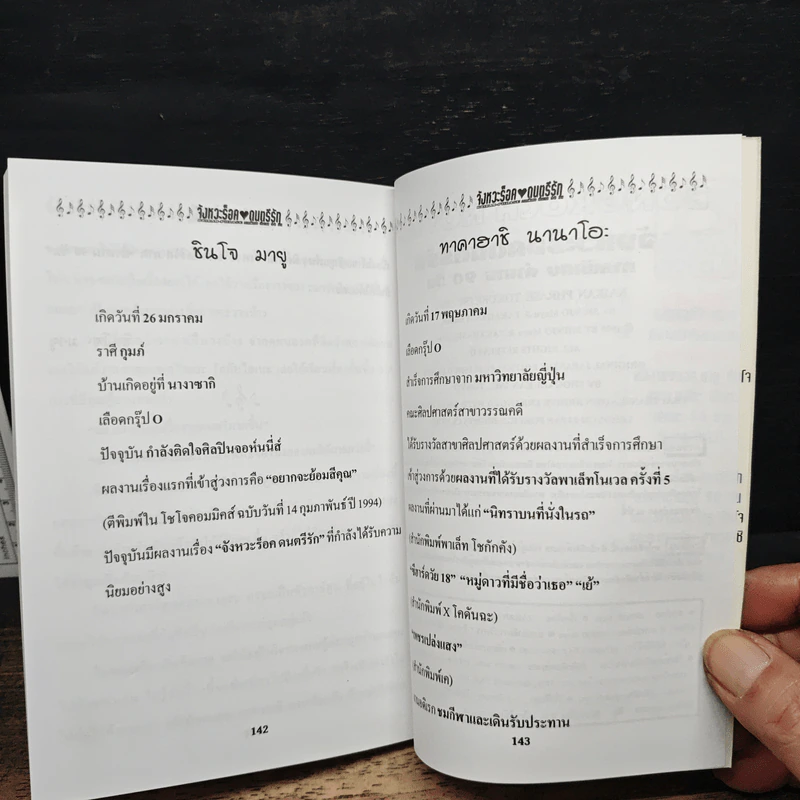 จังหวะร็อค♥ดนตรีรัก
ชินโจ มายู
เกิดวันที่ 26 มกราคม
ราศี กุมภ์
บ้านเกิดอยู่ที่ นางาซากิ
เลือดกรุ๊ป O
ปัจจุบัน กำลังติดใจศิลปินจอห์นนี่ส์
ผลงานเรื่องแรกที่เข้าสู่วงการคือ “อยากจะย้อมสีคุณ”
(ตีพิมพ์ใน โชโจคอมมิคส์ ฉบับวันที่ 14 กุมภาพันธ์ ปี 1994)
ปัจจุบันมีผลงานเรื่อง “จังหวะร็อค ดนตรีรัก” ที่กำลังได้รับความ
นิยมอย่างสูง
142
จังหวะร็อค♥ดนตรีรัก
ทาคาฮาชิ นานาโอะ
เกิดวันที่ 17 พฤษภาคม
เลือดกรุ๊ป O
สำเร็จการศึกษาจาก มหาวิทยาลัยญี่ปุ่น
คณะศิลปศาสตร์สาขาวรรณคดี
ได้รับรางวัลสาขาศิลปศาสตร์ด้วยผลงานที่สำเร็จการศึกษา
เข้าสู่วงการด้วยผลงานที่ได้รับรางวัลพาเล็ทโนเวล ครั้งที่ 5
ผลงานที่ผ่านมาได้แก่ “นิทราบนที่นั่งในรถ”
(สำนักพิมพ์พาเล็ท โชกักคัง)
18” “หมู่ดาวที่มีชื่อว่าเธอ” “เย้”
(สำนักพิมพ์ X โคดันฉะ)
เปล่งแสง”
(สำนักพิมพ์เค)
งานอดิเรก ชมกีฬาและเดินรับประทาน
143